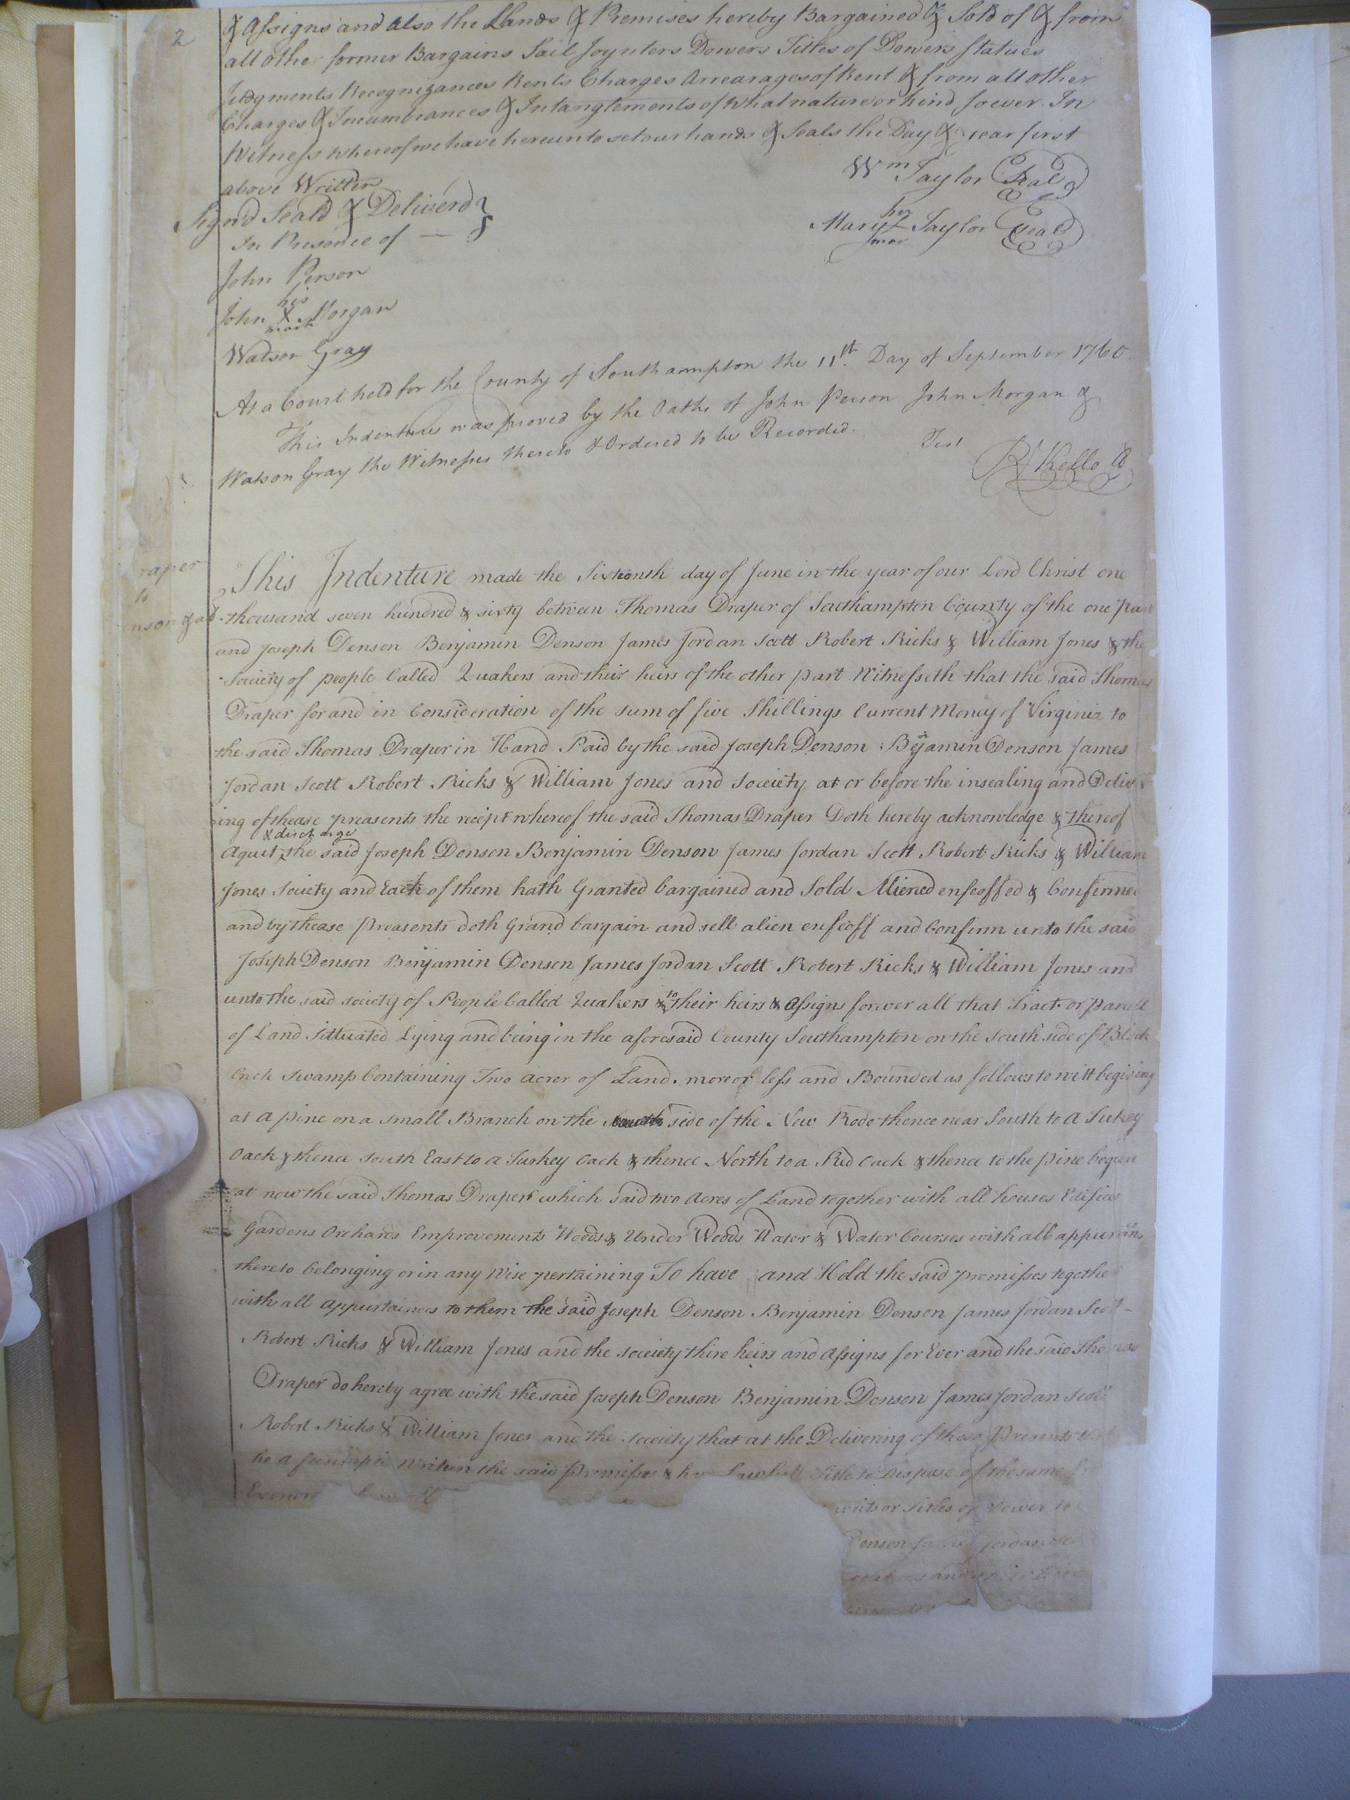 2
& Assigns and also the Lands & Premises hereby Bargained & Sold of & from
all othe former Bargains Sail Joynters Dowers Titles of Dowers Statues
Judgments Recognizances Rents Charges Arrearages of Rent & from all other
Charges & Incumbrances & Intanglements of what nature or kind soever In
Witness whereof we have hereunto set our hands & Seals the Day & year first
above Written
Wm Taylor Seal
Signd Seald & Deliverd
In Presence of
her
Mary Taylor Seal
mar
John Person
his
John X Morgan
mark
Watson Gray
At a Court held for the County of Southampton the 11th. Day of September 1760
This Indenture was proved by the Oaths of John Person John Morgan &
Watson Gray the Witnesses thereto & Ordered to be Recorded.
Test
Rd Kello
raper
to
nson & al
This Indenture made the Sixteenth day of June in the year of our Lord Christ one
thousand seven hundred & sixty between Thomas Draper of Southampton County of the one Part
and Joseph Denson Benjamin Denson James Jordan Scott Robert Ricks & William Jones & the
Society of people Called Quakers and their heirs of the other part Witnesseth that the said Thomas
Draper for and in Consideration of the sum of five Shillings Current Money of Virginia to
the said Thomas Draper in Hand Paid by the said Joseph Denson Bejamin Denson James
Jordan Scott Robert Ricks & William Jones and Society at or before the insealing and Deliv
ing of thease preasents the recipt whereof the said Thomas Draper Doth hereby acknowledge & thereof
& discharge
Aquit the said Joseph Denson Benjamin Denson James Jordan Scott Robert Ricks & William
Jones Society and Each of them hath Granted bargained and Sold Aliened enfeoffed & Confirmed
and by thease Preasents doth Grand bargain and sell alien enfeoff and Confirm unto the said
Joseph Denson Benjamin Denson James Jordan Scott Robert Ricks & William Jones and
unto the said society of People Called Quakers & to their heirs & Assigns forever all that Tract or Parcell
of Land Sittuated Lying and being in the aforesaid County Southampton on the South side of Black
Crick Swamp Containing Two Acres of Land more or less and Bounded as follows to witt begining
at a pine on a small Branch on the side of the New Rode thence near South to a Turkey
Oack & thence South East to a Turkey Oack & thence North to a Red Oack & thence to the pine begun
at now the said Thomas Drapers which said two Acres of Land together with all houses Edifices
Gardens Orchards Emprovements Woods & Under Woods Water & Water Courses with all appurtans
thereto belonging or in any Wise pertaining To have and Hold the said promisses together
with all Appurtainces to them the said Joseph Denson Benjamin Denson James Jordan Scott
Robert Ricks & William Jones and the society there heirs and Assigns for Ever and the said Thomas
Draper do hereby agree with the said Joseph Denson Benjamin Denson James Jordan Scott
Robert Ricks & William Jones and the Society that at the Delivering of these Presents
be a feesimple the said Promisses & Title to Dispose of the same
or Titles of Dower to
Denson James Jordan